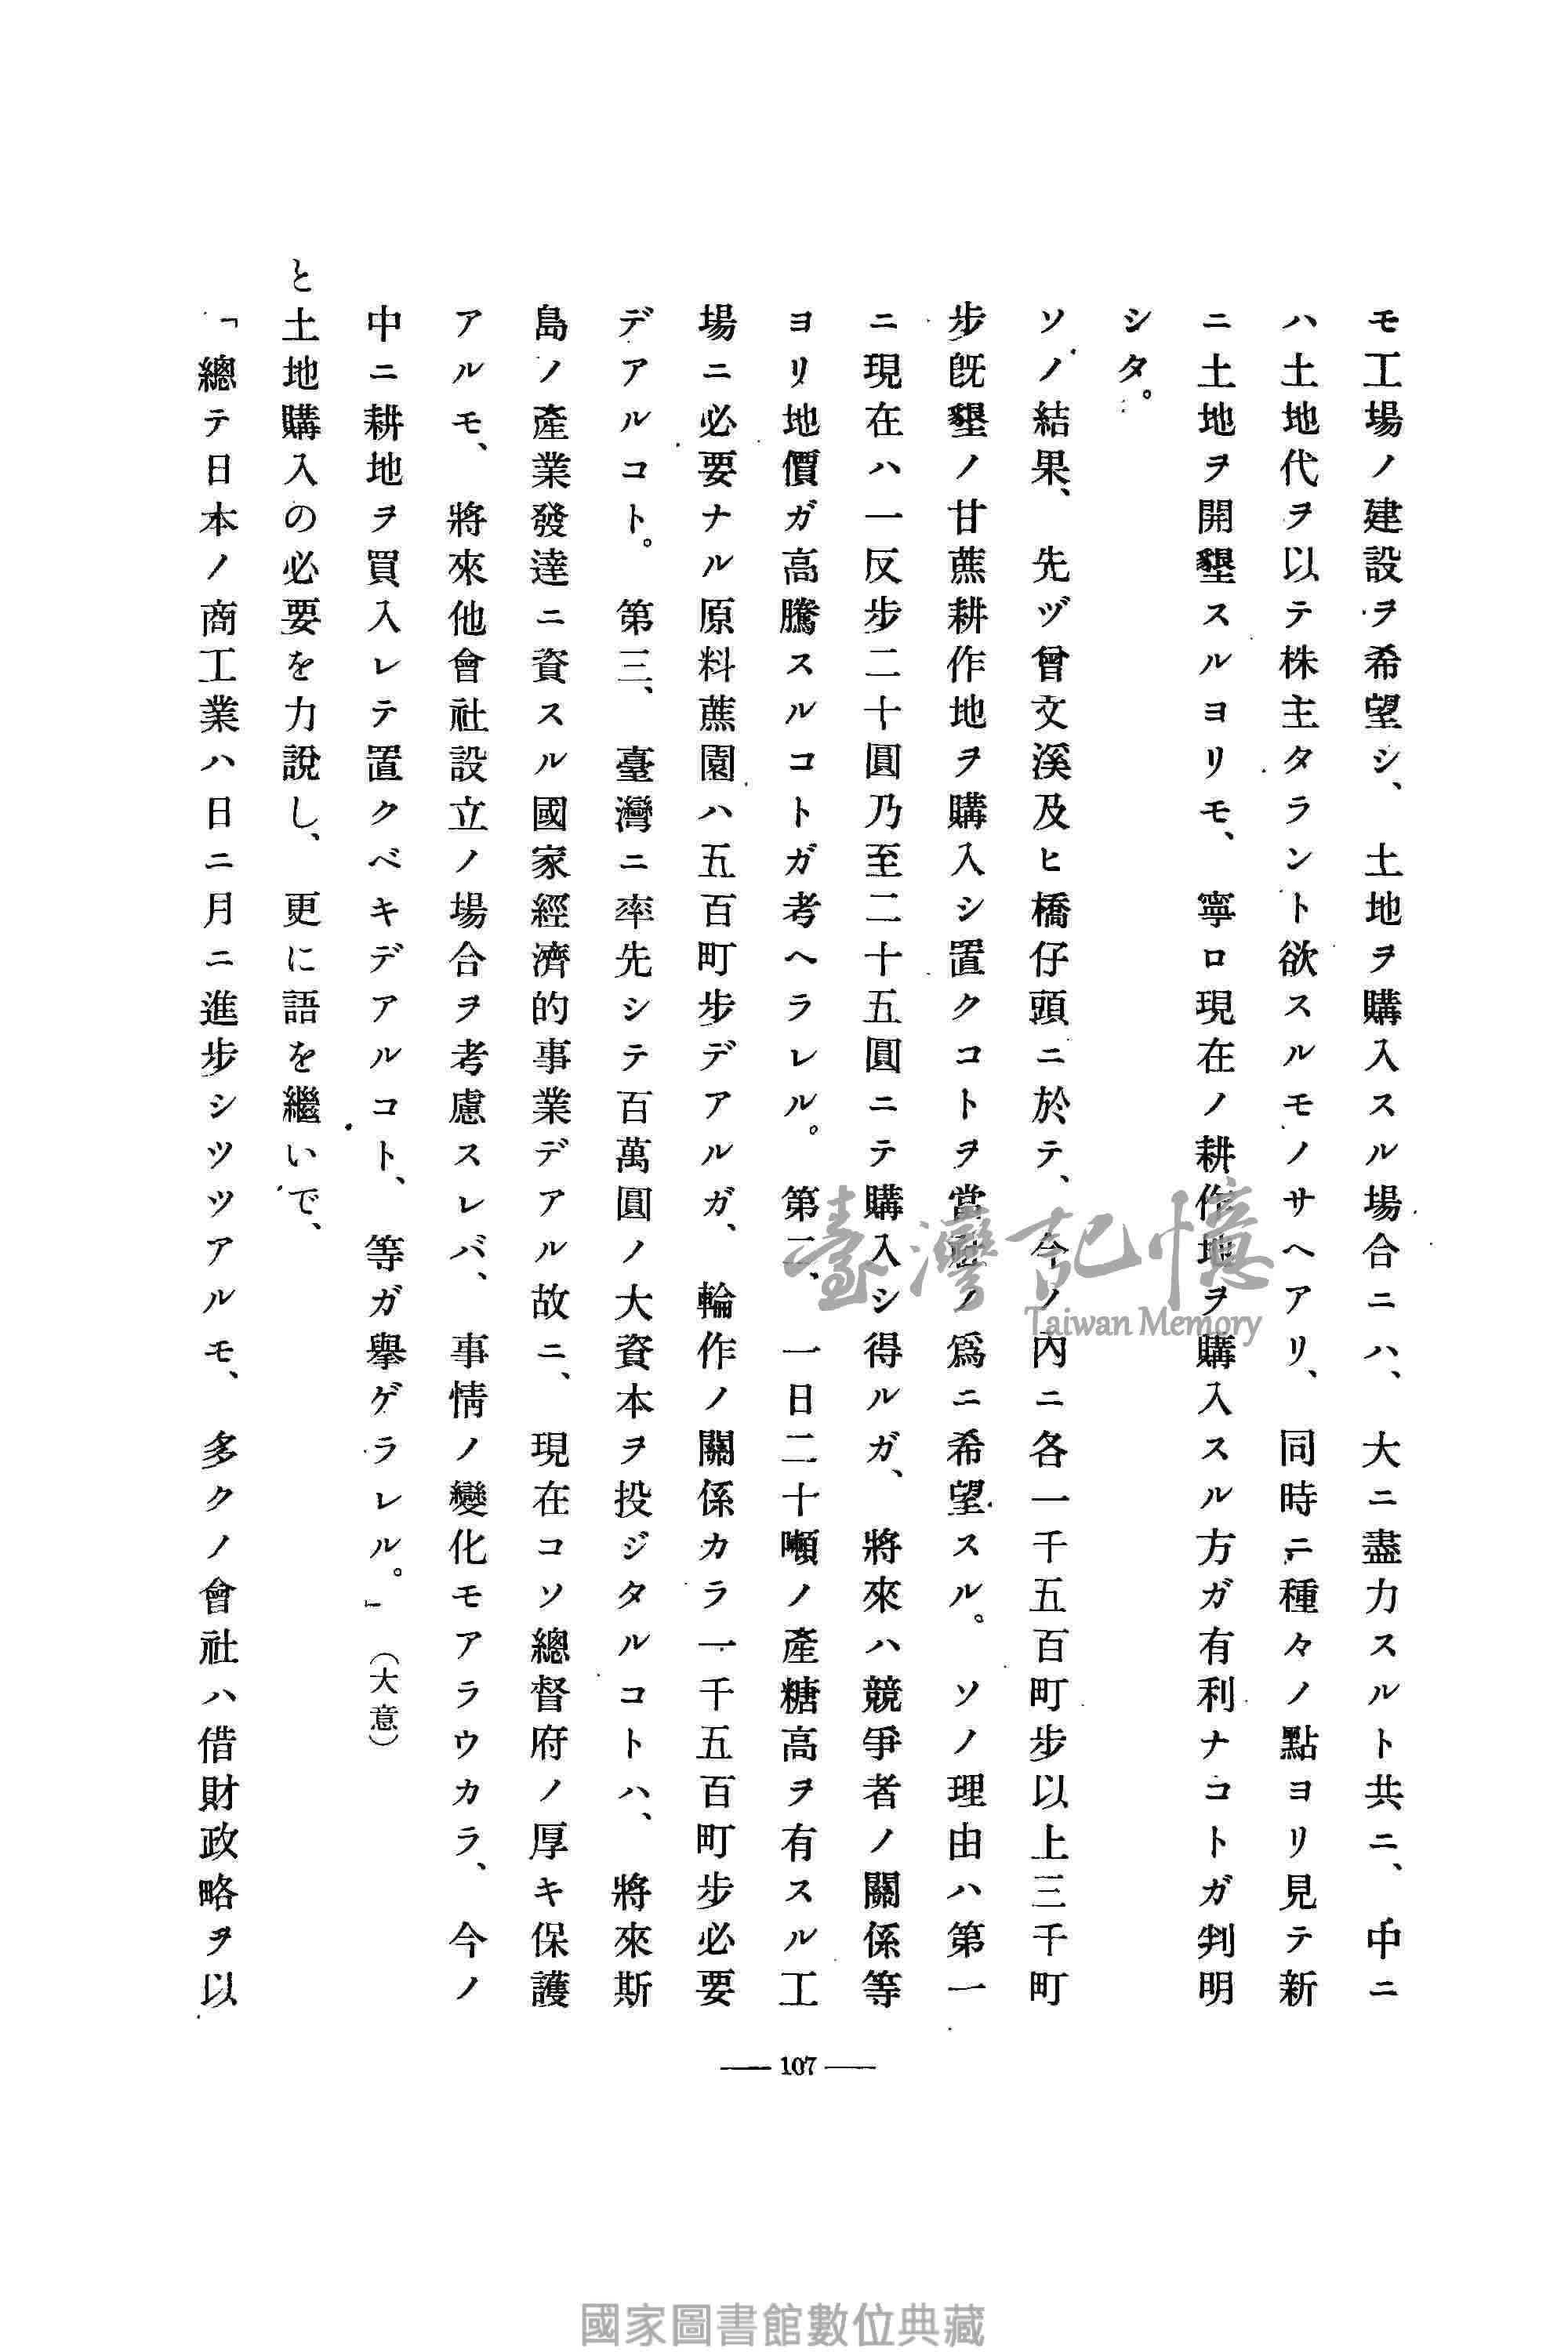 モ工場ノ建設ヲ希望シ、土地ヲ購入スル場合ニハ、大ニ盡力スルト共ニ、中ニ
ハ土地代ヲ以テ株主タラント欲スルモノサヘアリ、同時ニ種々ノ點ヨリ見テ新
ニ土地ヲ開墾スルヨリモ、寧ロ現在ノ耕作地ヲ購入スル方ガ有利ナコトガ判明
シタ。
ソノ結果、先ヅ曾文溪及ヒ橋仔頭ニ於テ、今ノ内ニ各一千五百町步以上三千町
步旣墾ノ甘蔗耕作地ヲ購入シ置クコトヲ當社ノ爲ニ希望スル。ソノ理由ハ第一
ニ現在ハ一反步二十圓乃至二十五圓ニテ購入シ得ルガ、將來ハ競爭者ノ關係等
ヨリ地價ガ高騰スルコトガ考ヘラレル。第二、一日二十噸ノ產糖高ヲ有スル工
場ニ必要ナル原料蔗園ハ五百町步デアルガ、輪作ノ關係カラ一千五百町步必要
デアルコト。第三、臺灣ニ率先シテ百萬圓ノ大資本ヲ投ジタルコトハ、將來斯
島ノ產業發達ニ資スル國家經濟的事業デアル故ニ、現在コソ總督府ノ厚キ保護
アルモ、將來他會社設立ノ場合ヲ考慮スレバ、事情ノ變化モアラウカラ、今ノ
中ニ耕地ヲ買入レテ置クベキデアルコト、等ガ擧ゲラレル。」（大意）
と土地購入の必要を力說し、更に語を繼いで、
「總テ日本ノ商工業ハ日ニ月ニ進步シツツアルモ、多クノ會社ハ借財政略ヲ以
107
臺灣記憶
Taiwan Memory
國家圖書館數位典藏